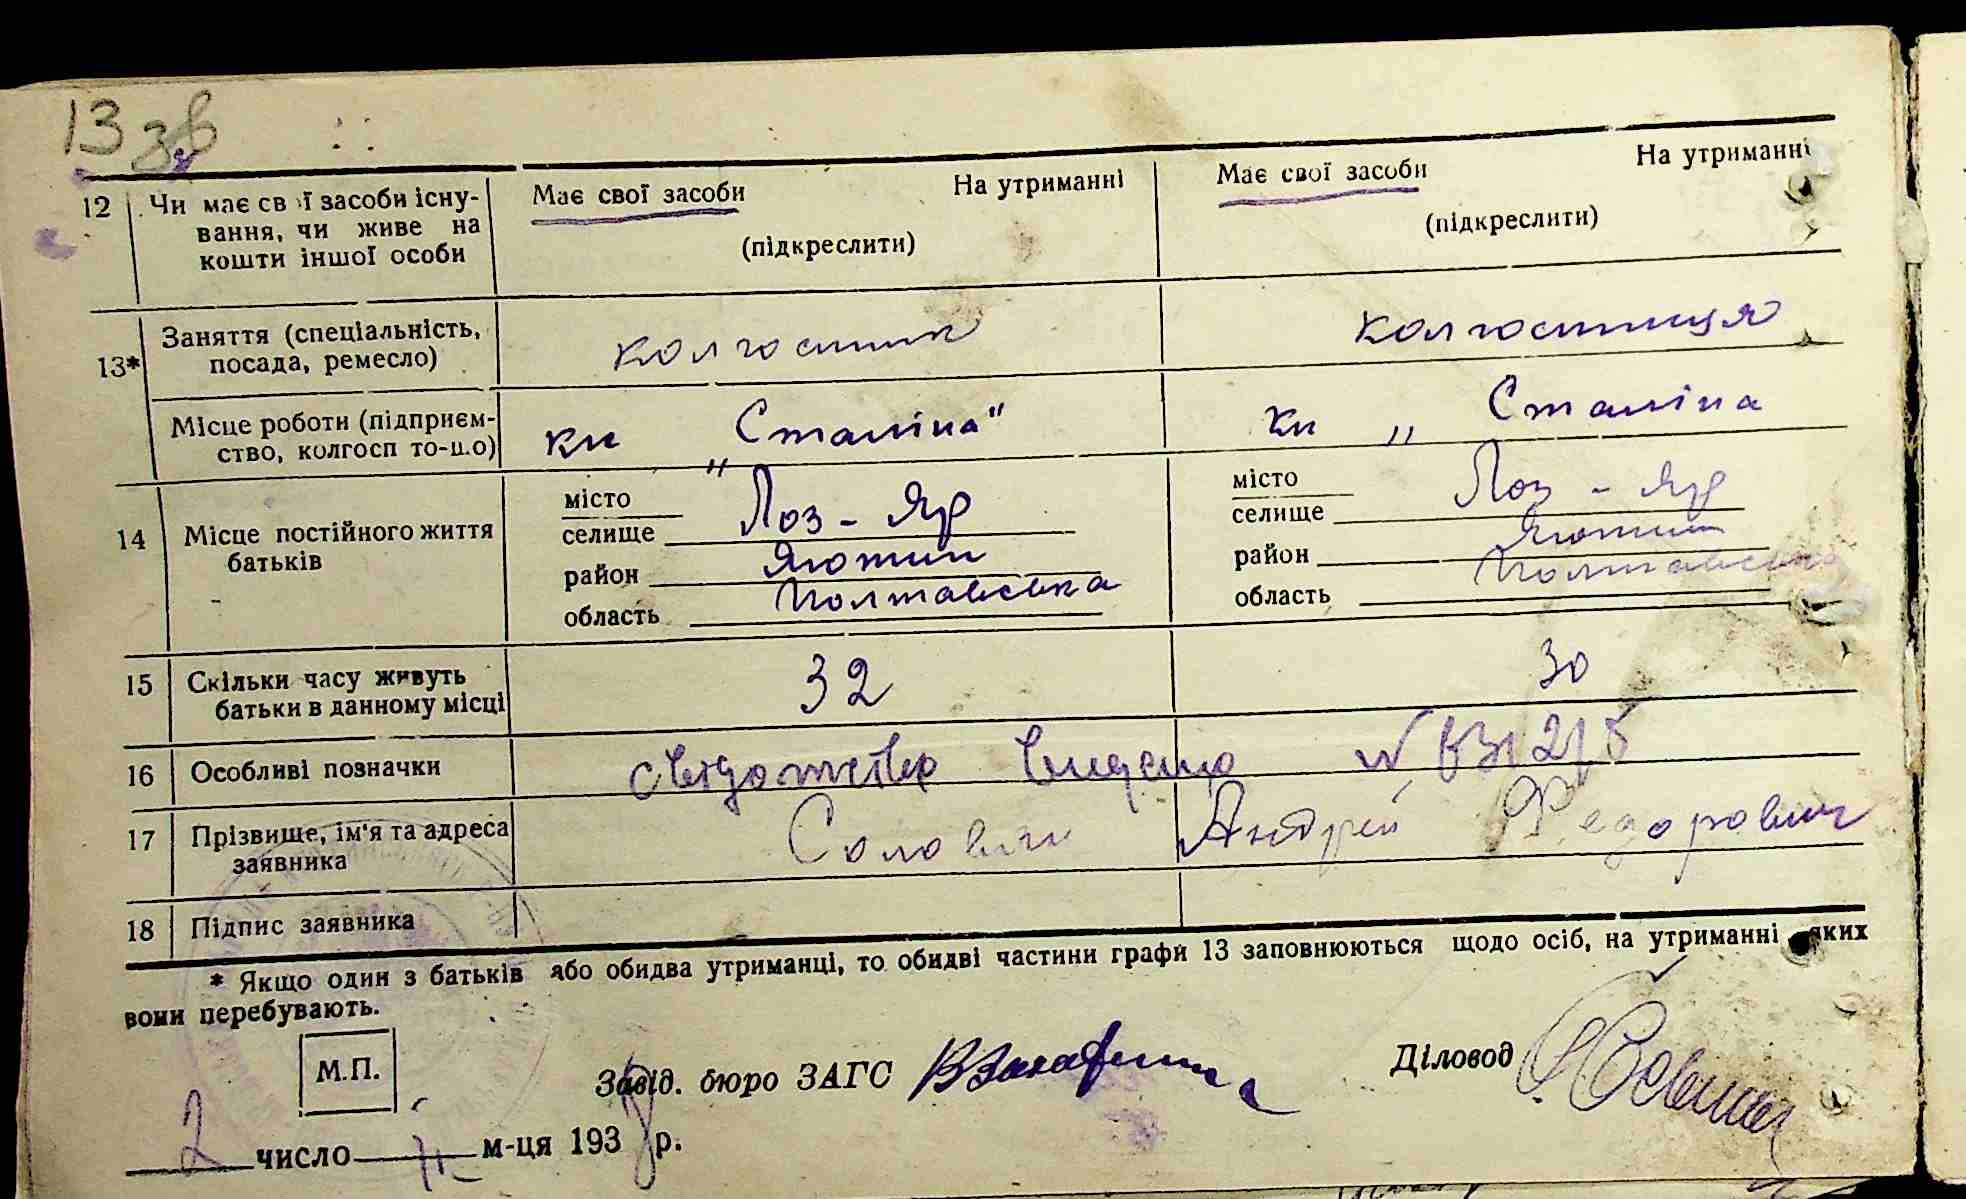 13 зв
12 Чи має свої засоби існу- Має свої засоби На утриманні Має свої засоби На утриманні
вання, чи живе на (підкреслити) (підкреслити)
кошти іншої особи
13* Заняття (спеціальність, колгоспник колгоспниця
посада, ремесло)
Місце роботи (підприєм- кп „Сталіна" кп „ Сталіна
ство, колгосп то-що)
14 Місце постійного життя місто місто
батьків селище Лоз-Яр селище Лоз-Яр
район Яготин район Яготин
область Полтавська область Полтавська
15 Скільки часу живуть 32 30
батьки в данному місці
16 Особливі позначки свідотство видано №
17 Прізвище, ім'я та адреса Андрей Федорович
заявника
18 Підпис заявника
* Якщо один з батьків або обидва утриманці, то обидві частини графи 13 заповнюються щодо осіб, на утриманні яких
вони перебувають.
М.П.
Завід. бюро ЗАГС Діловод
2 число м-ця 1938 р.